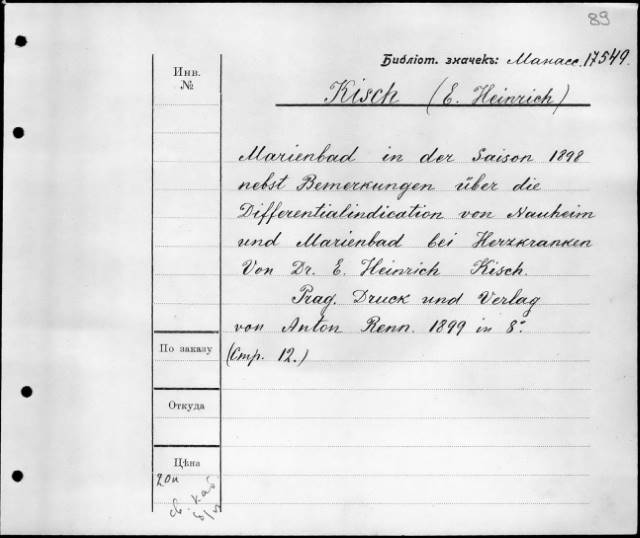 89
Библіот. значекъ: Манасс. 17549.
Инв.
№
Kisch (E. Heinrich)
Marienbad in der Saison 1898
nebst Bemerkungen über die
Differentialindication von Nauheim
und Marienbad bei Herzkranken
Von Dr. E. Heinrich Kisch.
Prag. Druck und Verlag
von Anton Renn. 1899 in 8º.
По заказу
(Стр. 12.)
Откуда
Цѣна